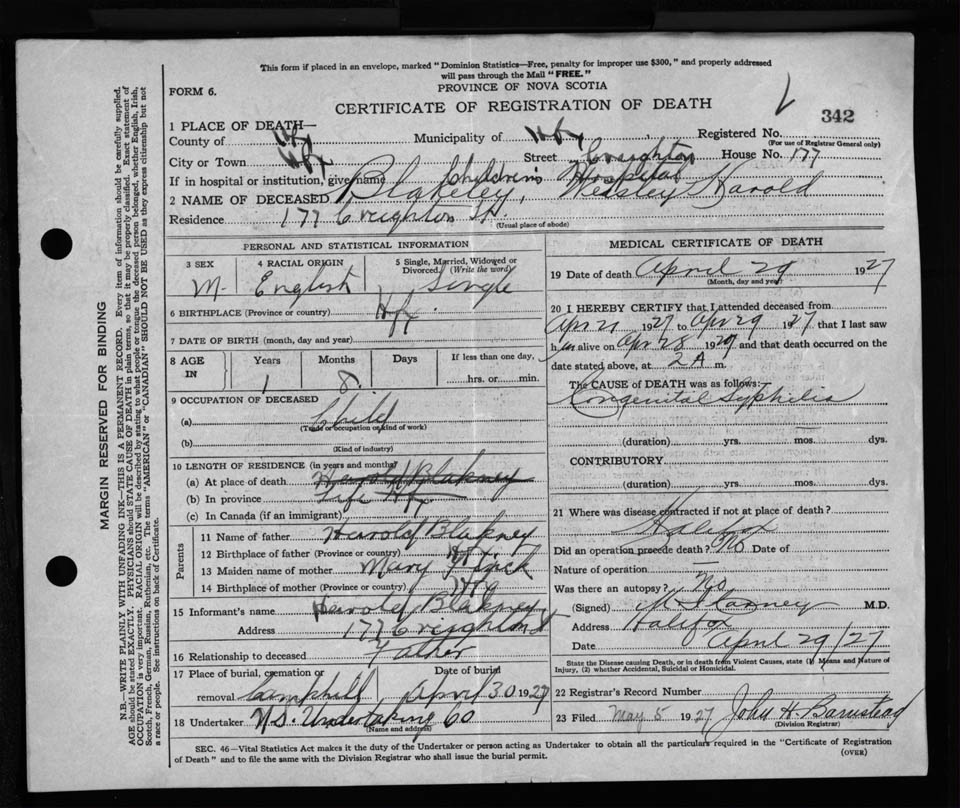 This form if placed in an envelope, marked "Dominion Statistics—Free, penalty for improper use $300," and properly addressed
will pass through the Mail "FREE."
FORM 6.
PROVINCE OF NOVA SCOTIA
CERTIFICATE OF REGISTRATION OF DEATH
342
1 PLACE OF DEATH—
County of Hfx Municipality of Hfx Registered No.
(For use of Registrar General only)
City or Town Hfx Street Creighton House No. 177
If in hospital or institution, give name Children's Hospital
2 NAME OF DECEASED Blakeley, Wessley Harold
Residence 177 Creighton St.
(Usual place of abode)
PERSONAL AND STATISTICAL INFORMATION
3 SEX 4 RACIAL ORIGIN 5 Single, Married, Widowed or Divorced. (Write the word)
M. English Single
6 BIRTHPLACE (Province or country) Hfx.
7 DATE OF BIRTH (month, day and year)
8 AGE IN Years Months Days If less than one day,
1 8. hrs. or min.
9 OCCUPATION OF DECEASED
(a) Child
(Trade or occupation or kind of work)
(b)
(Kind of industry)
10 LENGTH OF RESIDENCE (in years and months)
(a) At place of death Harold Blakney
(b) In province Life Hfx
(c) In Canada (if an immigrant)
Parents
11 Name of father Harold Blakney
12 Birthplace of father (Province or country) Hfx
13 Maiden name of mother Mary
14 Birthplace of mother (Province or country)
15 Informant's name Harold Blakney
Address 177 Creighton St
16 Relationship to deceased Father
17 Place of burial, cremation or removal Camphill Date of burial April 30 1927
18 Undertaker N.S. Undertaking Co
(Name and address)
MEDICAL CERTIFICATE OF DEATH
19 Date of death April 29 1927
(Month, day and year)
20 I HEREBY CERTIFY that I attended deceased from
Apr 21 1927 to Apr 29 1927 that I last saw
h im alive on Apr 28 1927 and that death occurred on the
date stated above, at 2 A m.
The CAUSE of DEATH was as follows:
Congenital Syphilis
(duration) yrs. mos. dys.
CONTRIBUTORY
(duration) yrs. mos. dys.
21 Where was disease contracted if not at place of death?
Halifax
Did an operation precede death? No Date of
Nature of operation —
Was there an autopsy? No
(Signed) M.D.
Address Halifax
Date April 29/27
State the Disease causing Death, or in death from Violent Causes, state (1) Means and Nature of
Injury, (2) whether Accidental, Suicidal or Homicidal.
22 Registrar's Record Number
23 Filed May 5 1927 John H. Barnstead
(Division Registrar)
SEC. 46—Vital Statistics Act makes it the duty of the Undertaker or person acting as Undertaker to obtain all the particulars required in the "Certificate of Registration
of Death" and to file the same with the Division Registrar who shall issue the burial permit. (OVER)
MARGIN RESERVED FOR BINDING
N.B.—WRITE PLAINLY WITH UNFADING INK—THIS IS A PERMANENT RECORD. Every item of information should be carefully supplied.
AGE should be stated EXACTLY. PHYSICIANS should STATE CAUSE OF DEATH in plain terms, so that it may be properly classified. Exact statement of
OCCUPATION is very important. RACIAL ORIGIN will be described by stating to what people or tongue the deceased person belonged, whether English, Irish,
Scotch, French, German, Russian, Ruthenian, etc. The terms "AMERICAN" or "CANADIAN" SHOULD NOT BE USED as they express citizenship but not
a race or people. See instructions on back of Certificate.